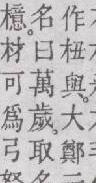 作杻與。大鄭
名曰萬歲。取名
檍。材可爲弓弩